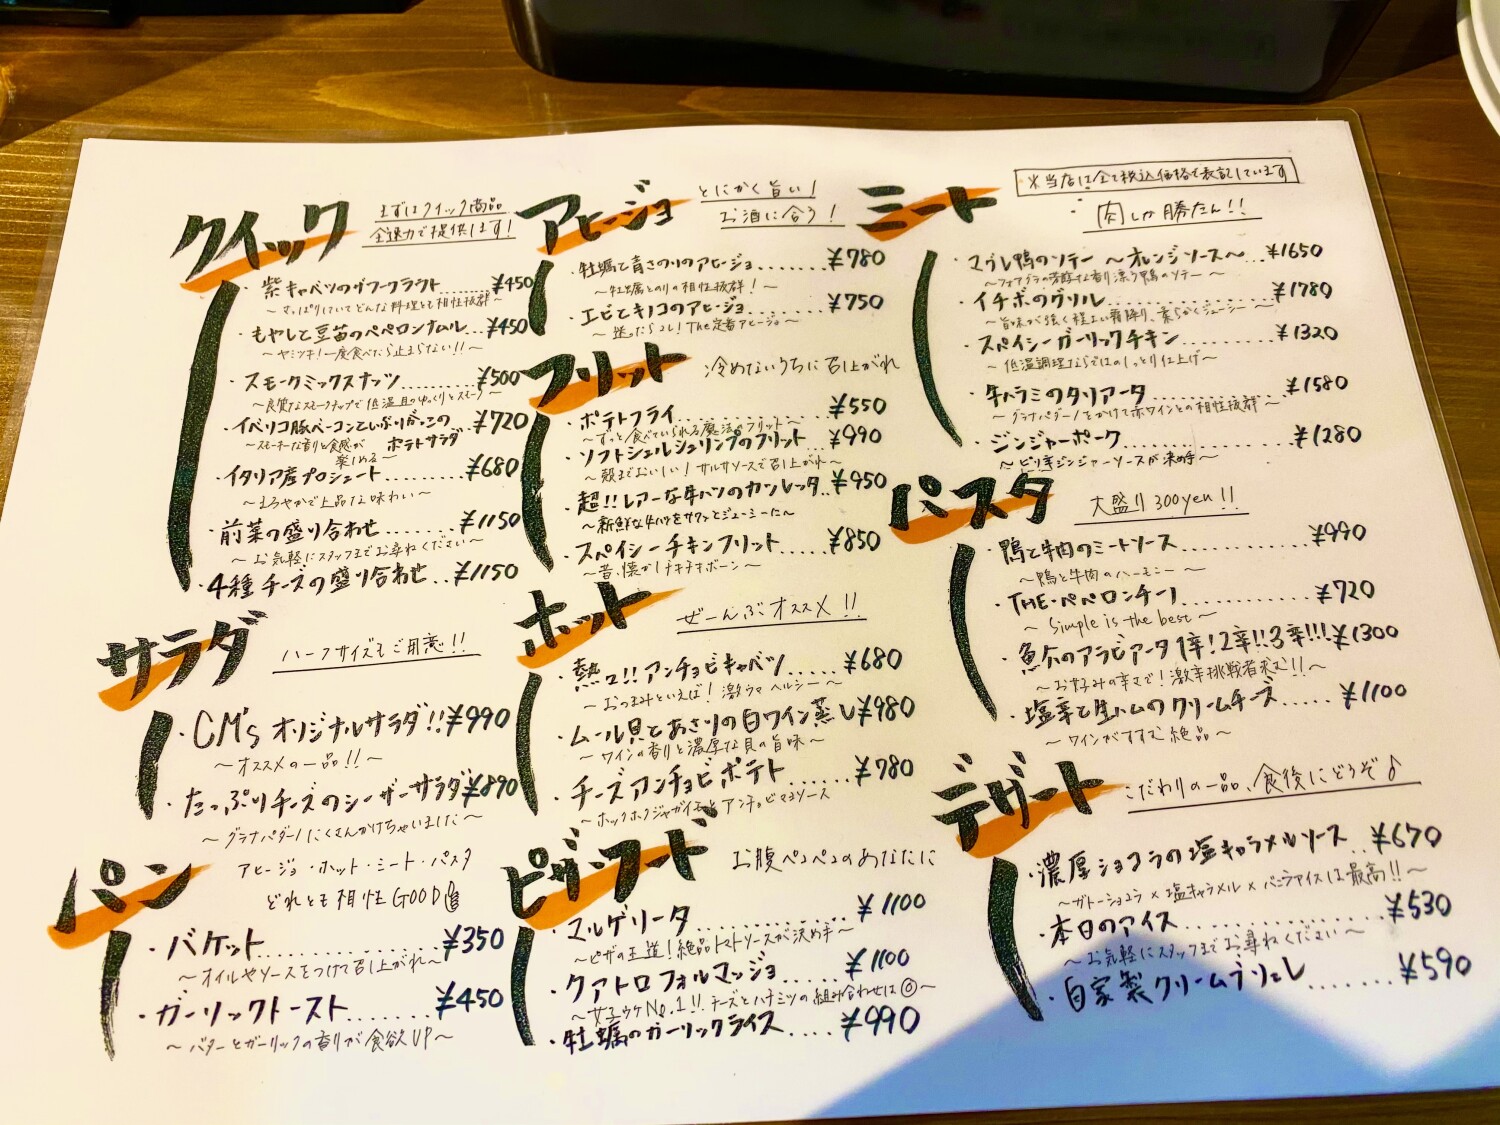 クイック
まずはクイック商品
全速力で提供します!
・紫キャベツのザワークラウト ¥450
～さっぱりしていてどんな料理とも相性抜群～
・もやしと豆苗のペペロンナムル...¥450
～ヤミツキ!一度食べたら止まらない!!～
・スモークミックスナッツ.........¥500
～良質なスモークチップで低温且つゆっくりとスモーク～
・イベリコ豚ベーコンといぶりがっこの ¥720
ポテトサラダ
～スモーキーな香りと食感が楽しめる～
・イタリア産プロシュート.........¥680
～まろやかで上品な味わい～
・前菜の盛り合わせ.........¥1150
～お気軽にスタッフまでお尋ねください～
・4種チーズの盛り合わせ..¥1150
サラダ
ハーフサイズもご用意!!
・CM's オリジナルサラダ!!¥990
～オススメの一品!!～
・たっぷりチーズのシーザーサラダ¥890
～グラナパダーノたくさんかけちゃいました～
パン
アヒージョ・ホット・ミート・パスタ
どれとも相性GOOD
・バケット............¥350
～オイルやソースをつけて召し上がれ～
・ガーリックトースト.......¥450
～バターとガーリックの香りが食欲UP～
アヒージョ
とにかく旨い!
お酒に合う!
・牡蠣と青さのりのアヒージョ.......¥780
～牡蠣とのりの相性抜群!～
・エビときのこのアヒージョ......¥750
～迷ったらコレ!The定番アヒージョ～
フリット
冷めないうちに召し上がれ
・ポテトフライ...............¥550
～ずっと食べていられる魔法のフリット～
・ソフトシェルシュリンプのフリット..¥990
～殻までおいしい!サルサソースで召し上がれ～
・超!!レアーな牛ハツのカツレッタ..¥950
～新鮮な牛ハツをサクッとジューシーに～
・スペイシーチキンフリット.....¥850
～昔、懐かしチキチキボーン～
ホット
ぜーんぶオススメ!!
・熱々!!アンチョビキャベツ.....¥680
～おつまみといえば!激ウマヘルシー～
・ムール貝とあさりの白ワイン蒸し¥980
～ワインの香りと濃厚な貝の旨味～
・チーズアンチョビポテト......¥780
～ホックホクジャガイモとアンチョビマヨソース
ピザ・フード
お腹ペコペコのあなたに
・マルゲリータ............¥1100
～ピザの王道!絶品トマトソースが決め手～
・クアトロフォルマッジョ......¥1100
～女子ウケNo.1!!チーズとハチミツの組み合わせは◎～
・牡蠣のガーリックライス....¥990
※当店は全て税込価格で表記しています
ミート
肉しか勝たん!!
・マグレ鴨のソテー ～オレンジソース～...¥1650
～フォアグラの芳醇な香り漂う鴨のソテー～
・イチボのグリル...............¥1780
～旨味が強く程よい霜降り、柔らかくジューシー～
・スペイシーガーリックチキン............¥1320
～低温調理ならではのしっとり仕上げ～
・牛ハラミのタリアータ............¥1580
～グラナパダーノをかけて赤ワインとの相性抜群～
・ジンジャーポーク...............¥1280
～ピリ辛ジンジャーソースが決め手～
パスタ
大盛り300yen!!
・鴨と牛肉のミートソース............¥990
～鴨と牛肉のハーモニー～
・THE・ペペロンチーノ............¥720
～Simple is the best～
・魚介のアラビアータ1辛!2辛!!3辛!!!¥1300
～お好みの辛さで!激辛挑戦者求む!!～
・塩辛と生ハムのクリームチーズ.....¥1100
～ワインがすすむ絶品～
デザート
こだわりの一品、食後にどうぞ♪
・濃厚ショコラの塩キャラメルソース..¥670
～ガトーショコラ×塩キャラメル×バニラアイスは最高!!～
・本日のアイス...............¥530
～お気軽にスタッフまでお尋ねください～
・自家製クリームブリュレ.........¥590